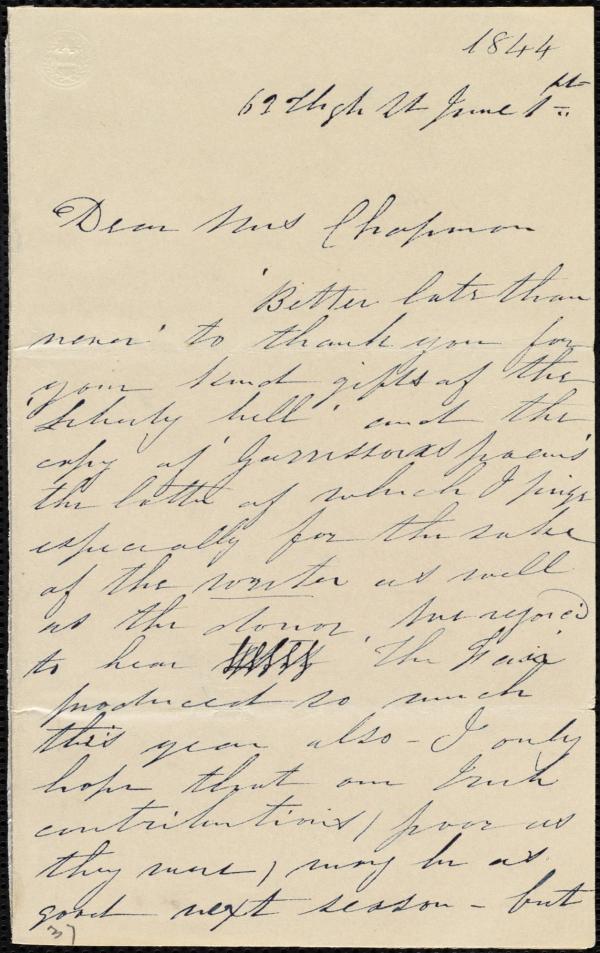 1844
62 High St June 1st
Dear Mrs Chapman
'Better late than
never' to thank you for
your kind gifts of the
'Liberty bell' and the
copy of 'Garrison's poems'
the latter of which I prize
especially for the sake
of the writer as well
as the donor. We rejoic'd
to hear 'The Fair'
produced so much
this year also - I only
hope that our Irish
contributions, poor as
they were, may be as
good next season - but